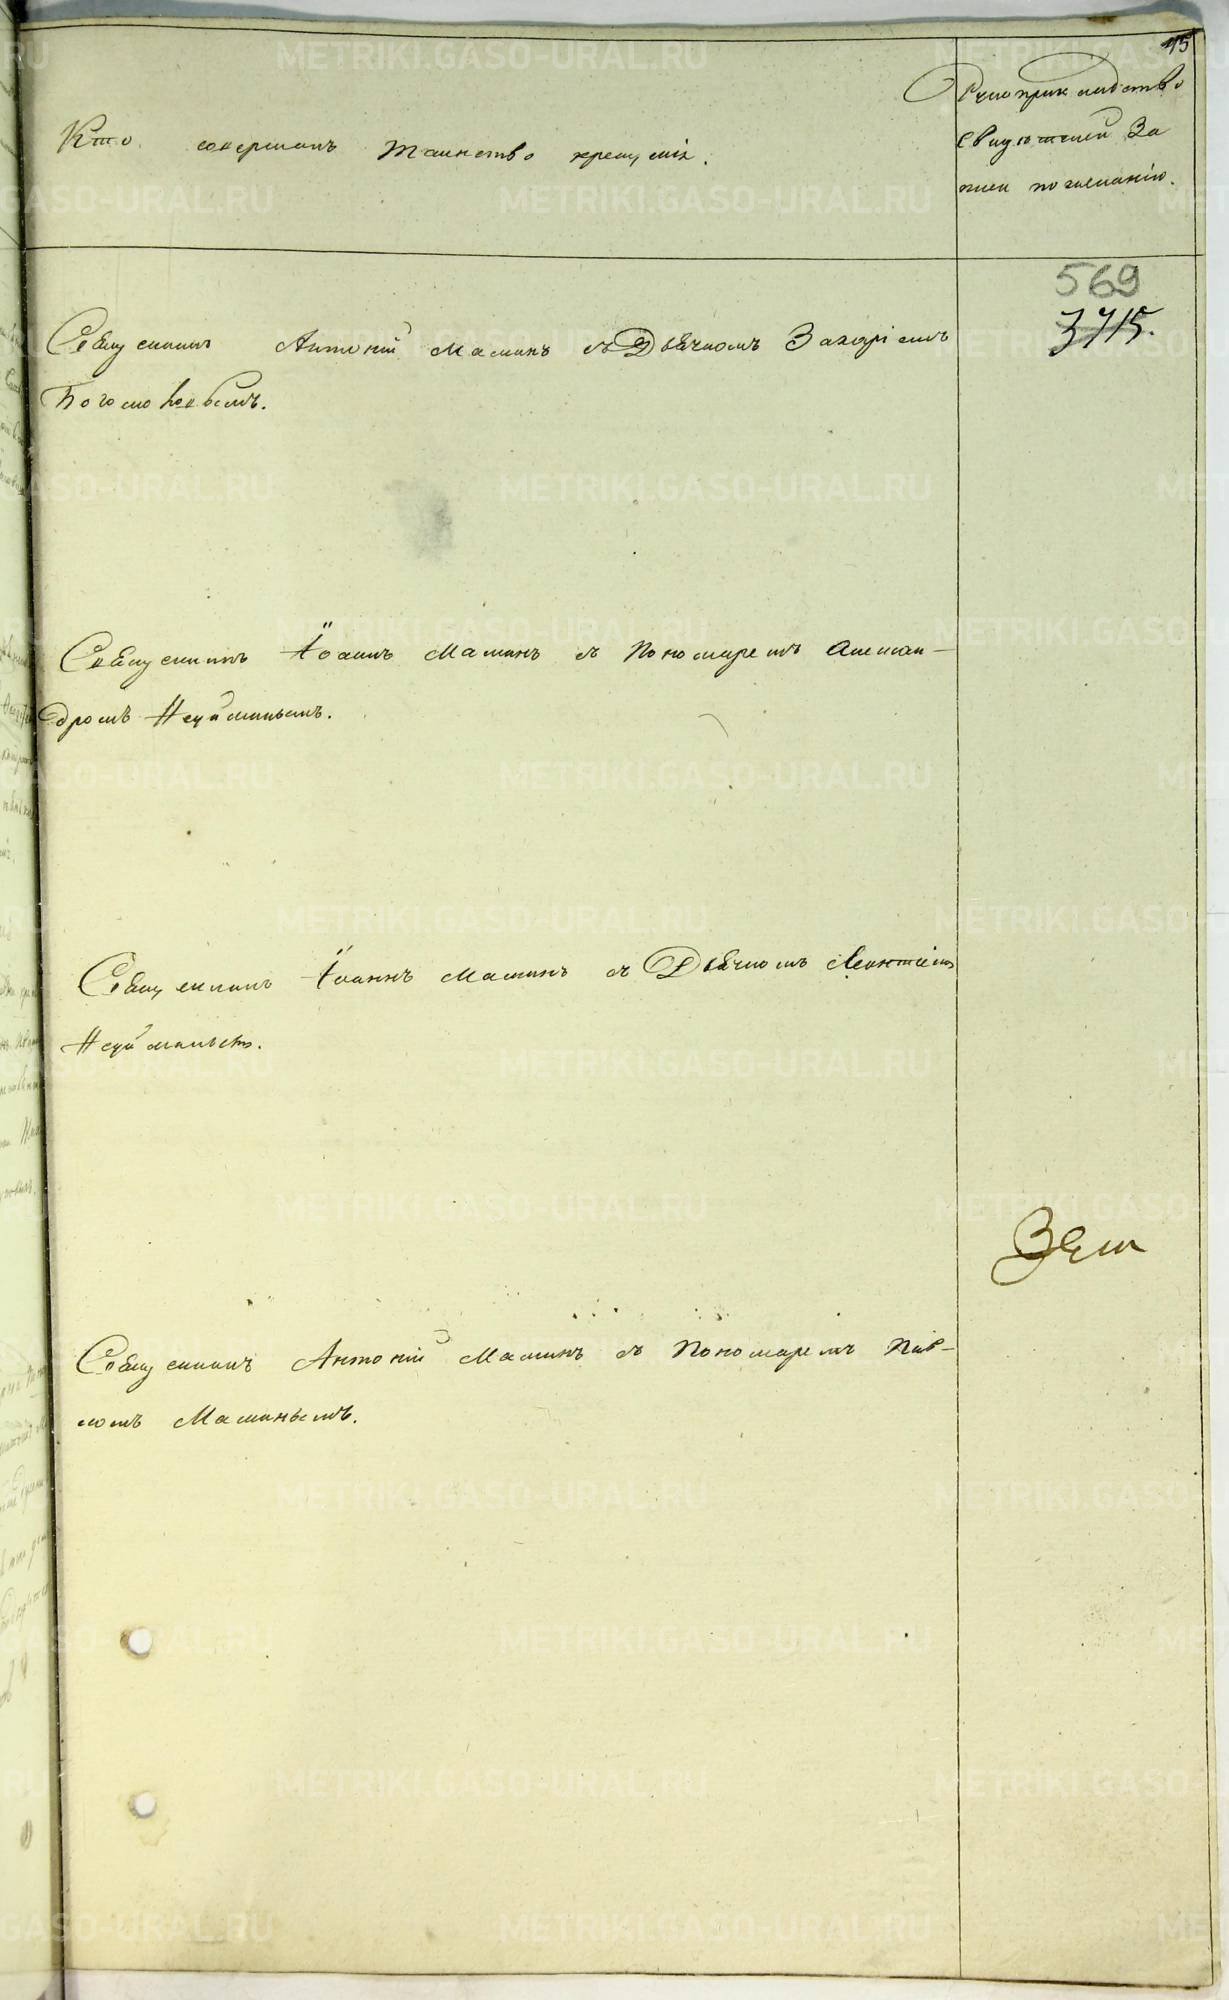 15
Кто совершалъ таинство крещенія.
Рукоприкладство
свидѣтелей за
писи по желанію.
569
3715.
Священникъ Антоній Маминъ съ Дьячкомъ Захаріемъ
Богомоловымъ.
Священникъ Іоаннъ Маминъ съ Пономаремъ Алексан-
дромъ Неуйминымъ.
Священникъ Іоаннъ Маминъ съ Дьячкомъ Леонтіемъ
Неуйминымъ.
Священникъ Антоній Маминъ съ Пономаремъ Пав-
ломъ Маминымъ.
METRIKI.GASO-URAL.RU